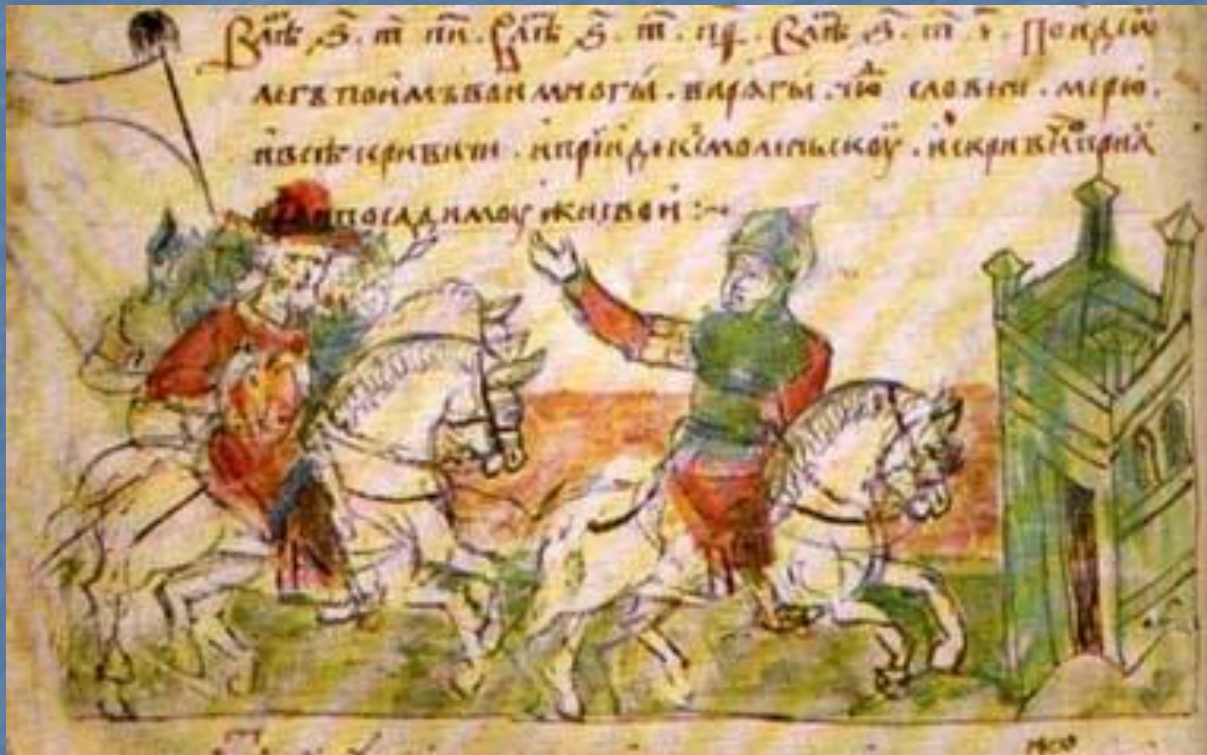 Влѣⷮ ѕ҃. т҃. п҃и. Влѣⷮ ѕ҃. т҃. Влѣⷮ ѕ҃. т҃. Поиде ѡ
легъ поимъ вои многы . варѧгы . чюⷣ словѣни . мерю .
и всѣ кривичи . и прїиде к смоленьскоу . и с кривичи приѧ
и посади моужи свои :~